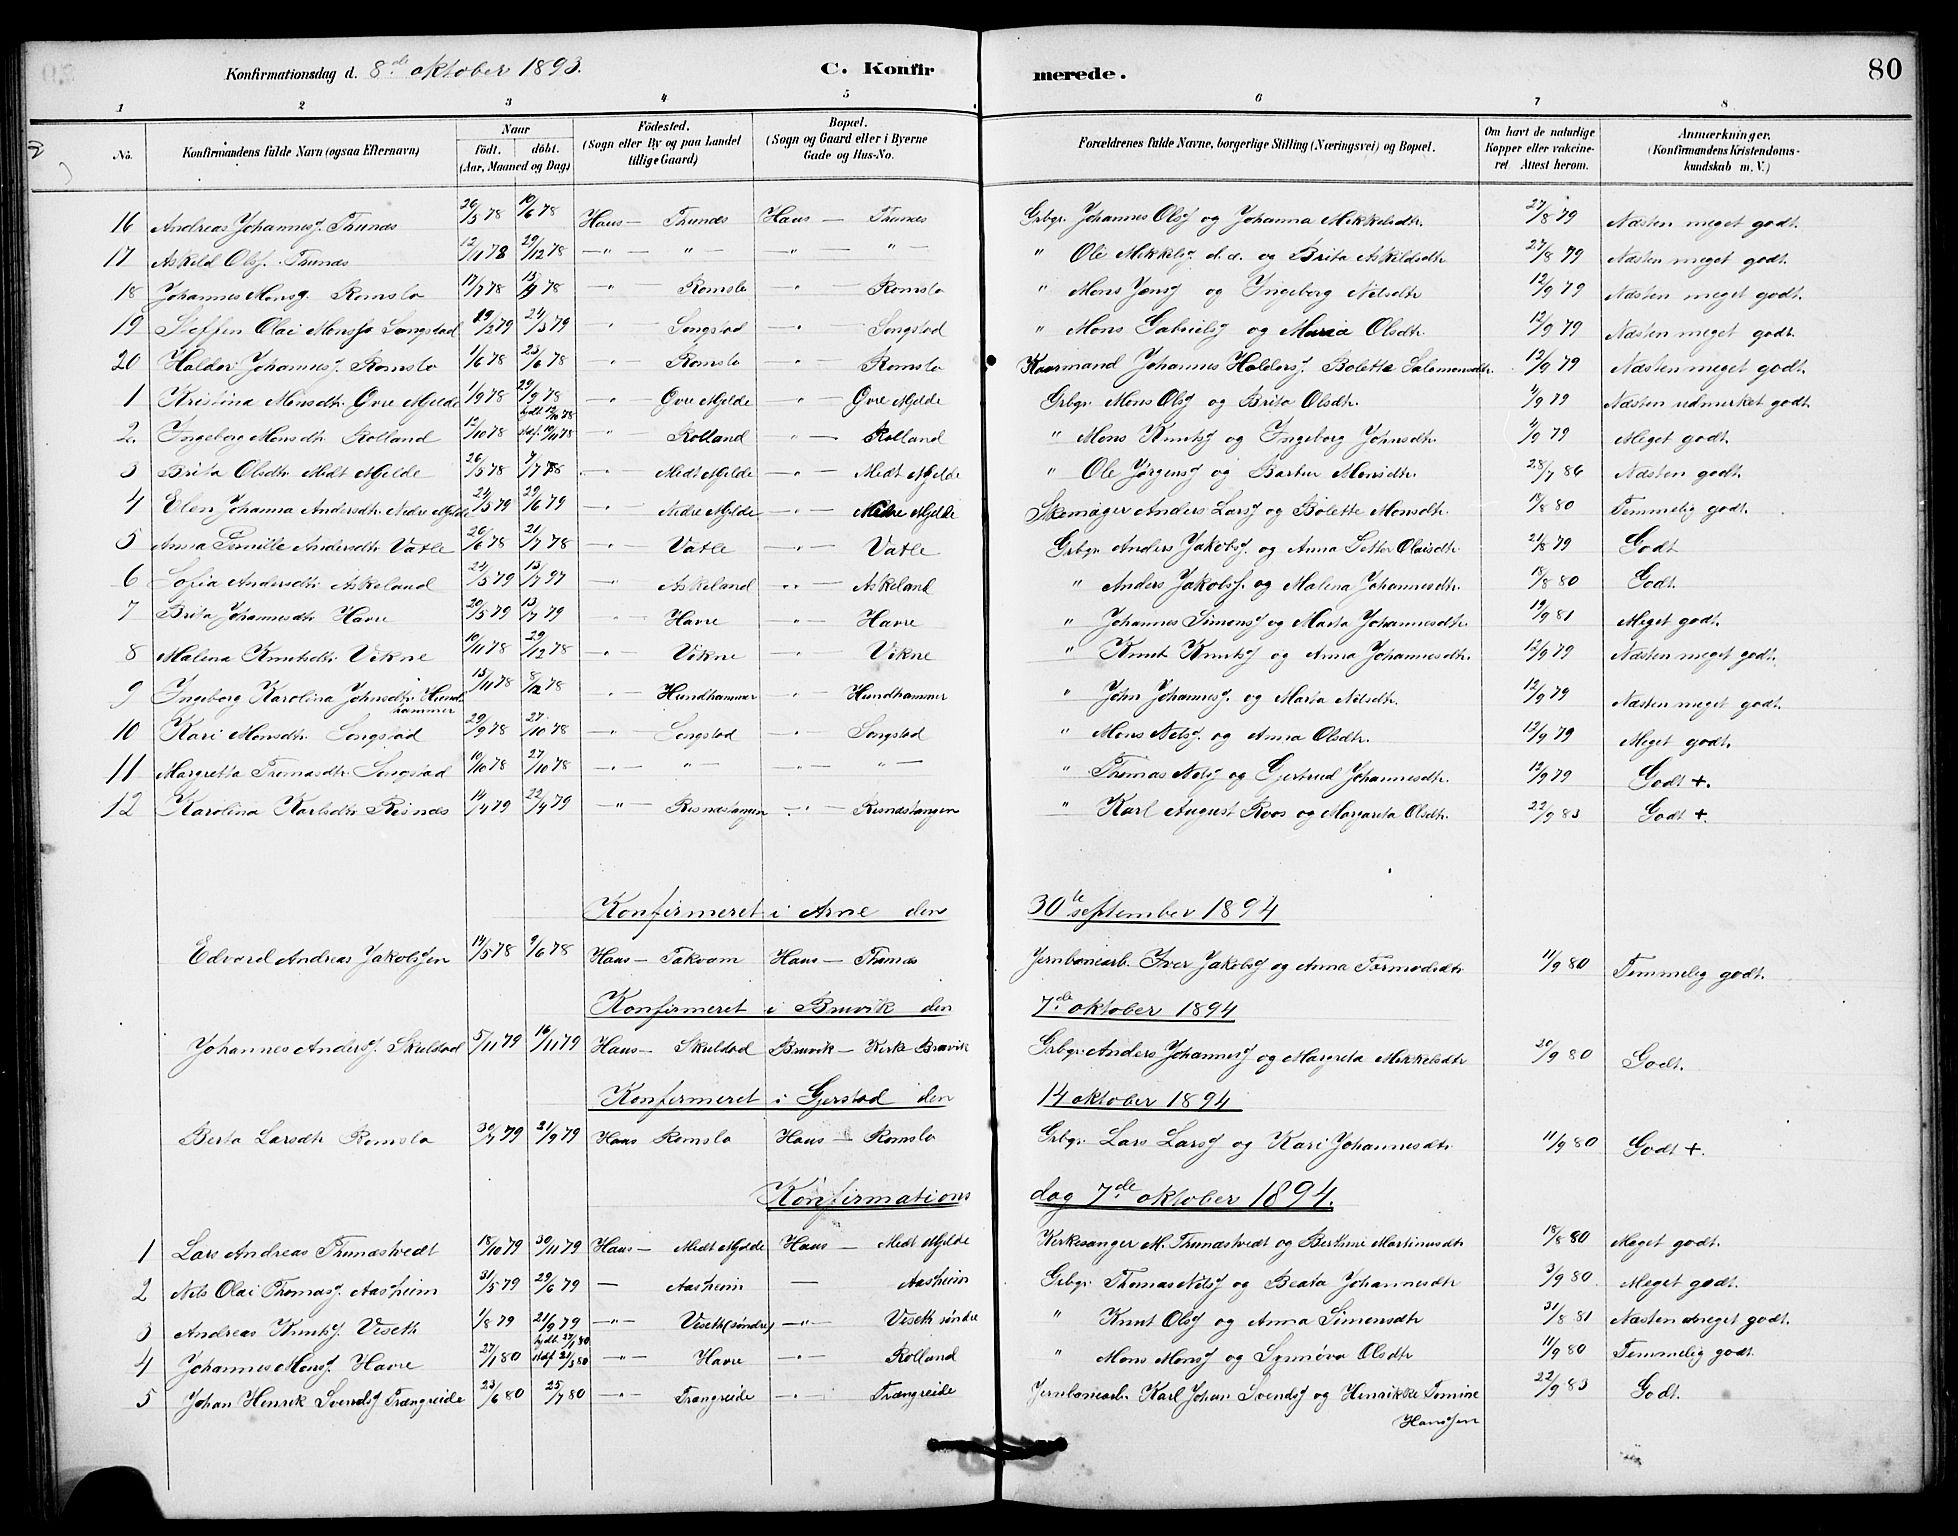 Konfirmationsdag d. 8de oktober 1893. C. Konfirmerede. 80
1 2 3 4 5 6 7 8
No. Konfirmandens fulde Navn (ogsaa Efternavn) Naar födt. döbt. (Aar, Maaned og Dag) Födested. (Sogn eller By og paa Landet tillige Gaard) Bopæl. (Sogn og Gaard eller i Byerne Gade og Hus-No. Forældrenes fulde Navne, borgerlige Stilling (Næringsvei) og Bopæl. Om havt de naturlige Kopper eller vakcineret Attest herom. Anmærkninger. (Konfirmandens Kristendomskundskab m. V.)
16 Andreas Johannesj Tunæs 26/5 78 10/6 78 Haus — Tunæs Haus — Tunæs Grbgr. Johannes Olsj og Johanna Mikkelsdtr. 27/8 79 Næsten meget godt.
17 Askeld Olsj. Tunæs 12/11 78 29/12 78 — " — " — — " — " — " Ole Mikkelsj d.a. og Brita Askeldsdtr 27/8 79 Næsten meget godt.
18 Johannes Monsj. Romslo 17/7 78 78 — " — Romslo — " — Romslo " Mons Jensj og Ingeborg Nilsdtr 12/9 79 Næsten meget godt.
19 Steffen Olai Monssj Songstad 19/2 79 24/3 79 — " — Songstad — " — Songstad " Mons Gabrielsj og Maria Olsdtr. 12/9 79 Næsten meget godt.
20 Haldor Johannesj. Romslo 1/6 78 23/6 78 — " — Romslo — " — Romslo Kaarmand Johannes Haldorsj. Bolette Salomonsdtr. 12/9 79 Næsten meget godt.
1 Kristina Monsdtr. Øvre Mjelde 1/9 78 29/9 78 — " — Øvre Mjelde — " — Øvre Mjelde Grbgr. Mons Olsj og Brita Olsdtr. 11/9 79 Næsten udmerket godt
2. Ingeborg Monsdtr. Rolland 12/10 78 hjdt. 12/10 78 stdf. 10/11 78 — " — Rolland — " — Rolland " Mons Knutsj og Ingeborg Johnsdtr. 11/9 79 Meget godt.
3 Brita Olsdtr. Midt Mjelde 26/5 78 7/7 78 — " — Midt Mjelde — " — Midt Mjelde " Ole Jørgensj og Barbru Monsdtr. 28/7 86 Næsten godt.
4 Elen Johanna Andersdtr. Nedre Mjelde 24/5 79 29/6 79 — " — Nedre Mjelde — " — Nedre Mjelde Skomager Anders Larsj og Bolette Monsdtr. 18/8 80 Temmelig godt.
5 Anna Pernille Andersdtr. Vatle 26/6 78 21/7 78 — " — Vatle — " — Vatle Grbgr. Anders Jakobsj. og Anna Olaisdtr 21/8 79 Godt
6 Sofia Andersdtr. Askeland 24/5 79 13/7 97 — " — Askeland — " — Askeland " Anders Jakobsj. og Malena Johannesdtr. 18/8 80 Godt.
7 Brita Johannesdtr. Havre 20/5 79 13/7 79 — " — Havre — " — Havre " Johannes Simonsj og Marta Johannesdtr. 19/9 81 Meget godt.
8 Malena Knutsdtr. Vikne 10/11 78 29/12 78 — " — Vikne — " — Vikne " Knut Knutsj og Anna Johannesdtr. 12/9 79 Næsten meget godt.
9 Ingeborg Karolina Johnsdtr. Hundhammer 13/11 78 8/12 78 — " — Hundhammer — " — Hundhammer " John Johannesj. og Marta Nilsdtr. 12/9 79 Næsten meget godt.
10 Kari Monsdtr. Songstad 29/9 78 27/10 78 — " — Songstad — " — Songstad " Mons Nilsj. og Anna Olsdtr. 12/9 79 Meget godt.
11 Margretta Tomasdtr. Songstad 10/10 78 27/10 78 — " — " — — " — " — " Thomas Nilsj og Gjertrud Johannesdtr. 12/9 79 Godt +.
12 Karolina Karlsdtr. Risnæs 14/4 79 22/4 79 — " — Risnæstangen — " — Risnæstangen " Karl August Roos og Margreta Olsdtr. 22/9 83 Godt +.
Konfirmeret i Arne den 30te september 1894
Edvard Andreas Jakobsjen 14/5 78 9/6 78 Haus — Takvam Haus — Tunæs Jernbanearb. Iver Jakobsj og Anna Tormodsdtr 11/9 80 Temmelig godt.
Konfirmeret i Bruvik den 7de oktober 1894
Johannes Andersj. Skulstad 5/11 79 16/11 79 Haus — Skulstad Bruvik — Kirke Bruvik Grbgr. Anders Johannesj og Margreta Mikkelsdtr 20/9 80 Godt.
Konfirmeret i Gjerstad den 14 oktober 1894
Berta Larsdtr Romslo 30/7 79 21/9 79 Haus Romslo Haus — Romslo Grbgr. Lars Larsj og Kari Johannesdtr 11/9 80 Godt +.
Konfirmationsdag 7de oktober 1894.
1 Lars Andreas Tunæstvedt 18/10 79 30/11 79 Haus — Midt Mjelde Haus — Midt Mjelde Kirkesanger M. Tunæstvedt og Berthine Martinusdtr 18/8 80 Meget godt.
2 Nils Olai Thomasj. Aasheim 31/5 79 29/6 79 — Aasheim — Aasheim Grbgr. Thomas Nilsj og Beata Johannesdtr 3/9 80 Meget godt.
3 Andreas Knutsj. Viseth 1/8 79 21/9 79 — " — Viseth (søndre) — " — Viseth søndre " Knut Olsj og Anna Simonsdtr 31/8 81 Næsten meget godt.
4 Johannes Monsj. Havre 27/1 80 hjdt. 27/1 80 stdf. 21/3 80 — " — Havre — " — Rolland " Mons Monsj og Synnøva Olsdtr 11/9 80 Temmelig godt.
5 Johan Henrik Svendsj Trængreide 23/6 80 25/7 80 — " — Trængreide — " — Trængreide Jernbanearb. Karl Johan Svendsj og Henrikke Tomine Hansjen 22/9 83 Godt.